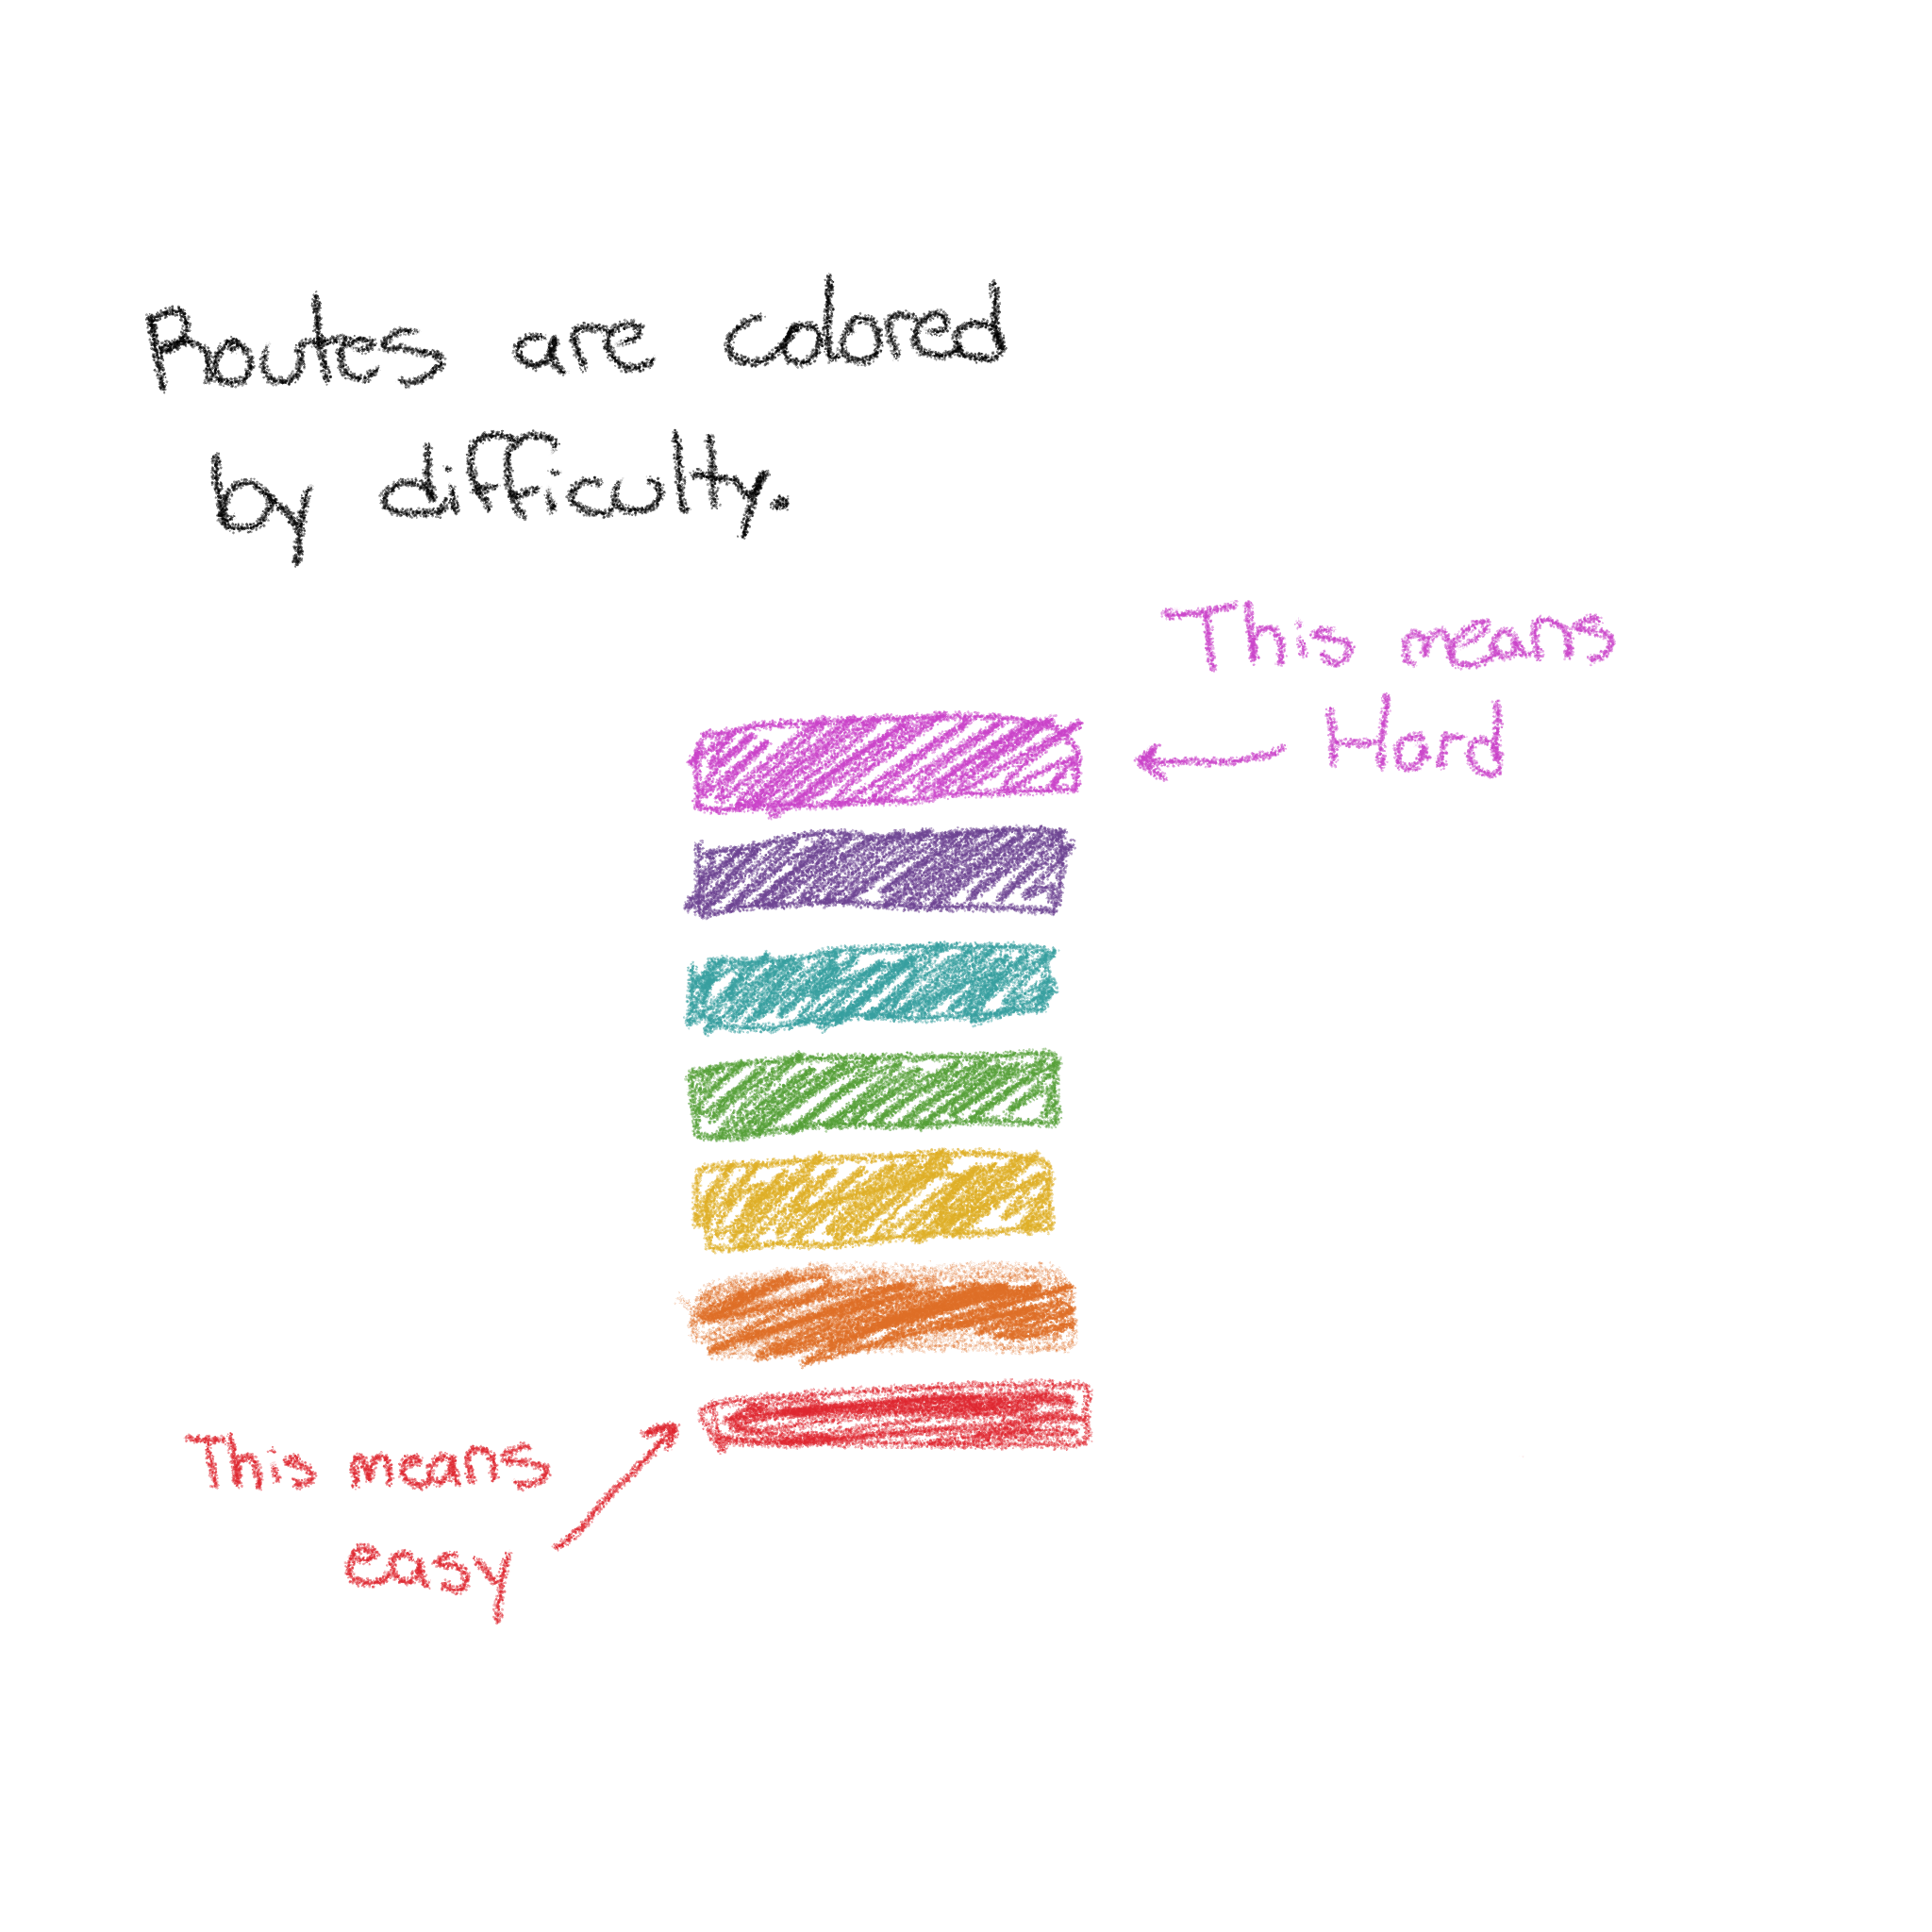 Routes are colored
by difficulty.
This means
Hard
This means
easy